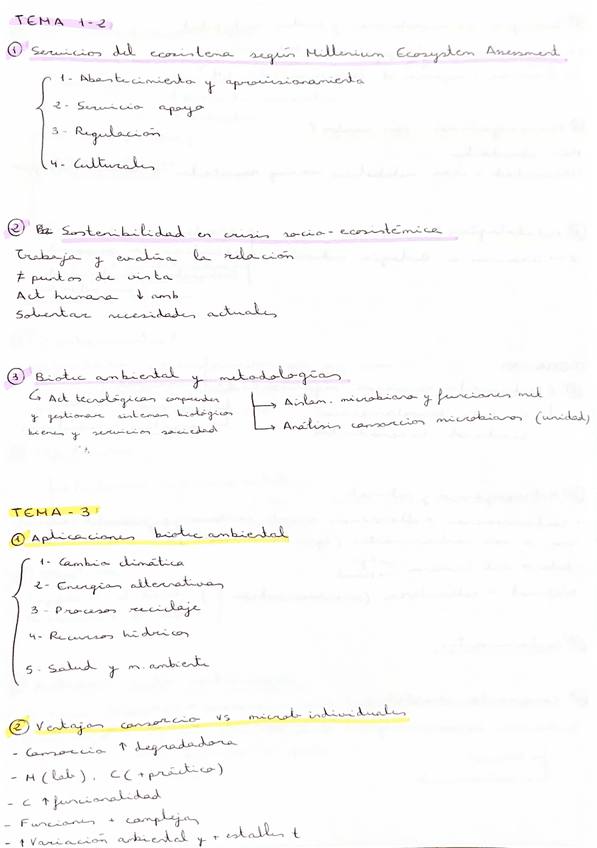 TEMA 1-2
① Servicios del ecosistema según Millenium Ecosystem Anessment
1- Abastecimiento y aprovisionamiento
2- Servicio apoyo
3- Regulación
4- Culturales
② Sostenibilidad en crisis socio-ecosistémica
Trabaja y evalúa la relación
≠ puntos de vista
Act humana ↓ amb
Solventar necesidades actuales
③ Biotec ambiental y metodologías
↳ Act tecnológicas comprender → Aislam. microbiano y funciones met
y gestionar sistemas biológicos
bienes y servicios sociedad → Análisis consorcios microbianos (unidad)
TEMA - 3
① Aplicaciones biotec ambiental
1- Cambio climático
2- Energías alternativas
3- Procesos reciclaje
4- Recursos hídricos
5- Salud y m. ambiente
② Ventajas consorcio vs microb individuales
- Consorcio ↑ degradadora
- M (lab), C (+ práctico)
- C ↑ funcionalidad
- Funciones + complejas
- ↑ Variación ambiental y + estables t